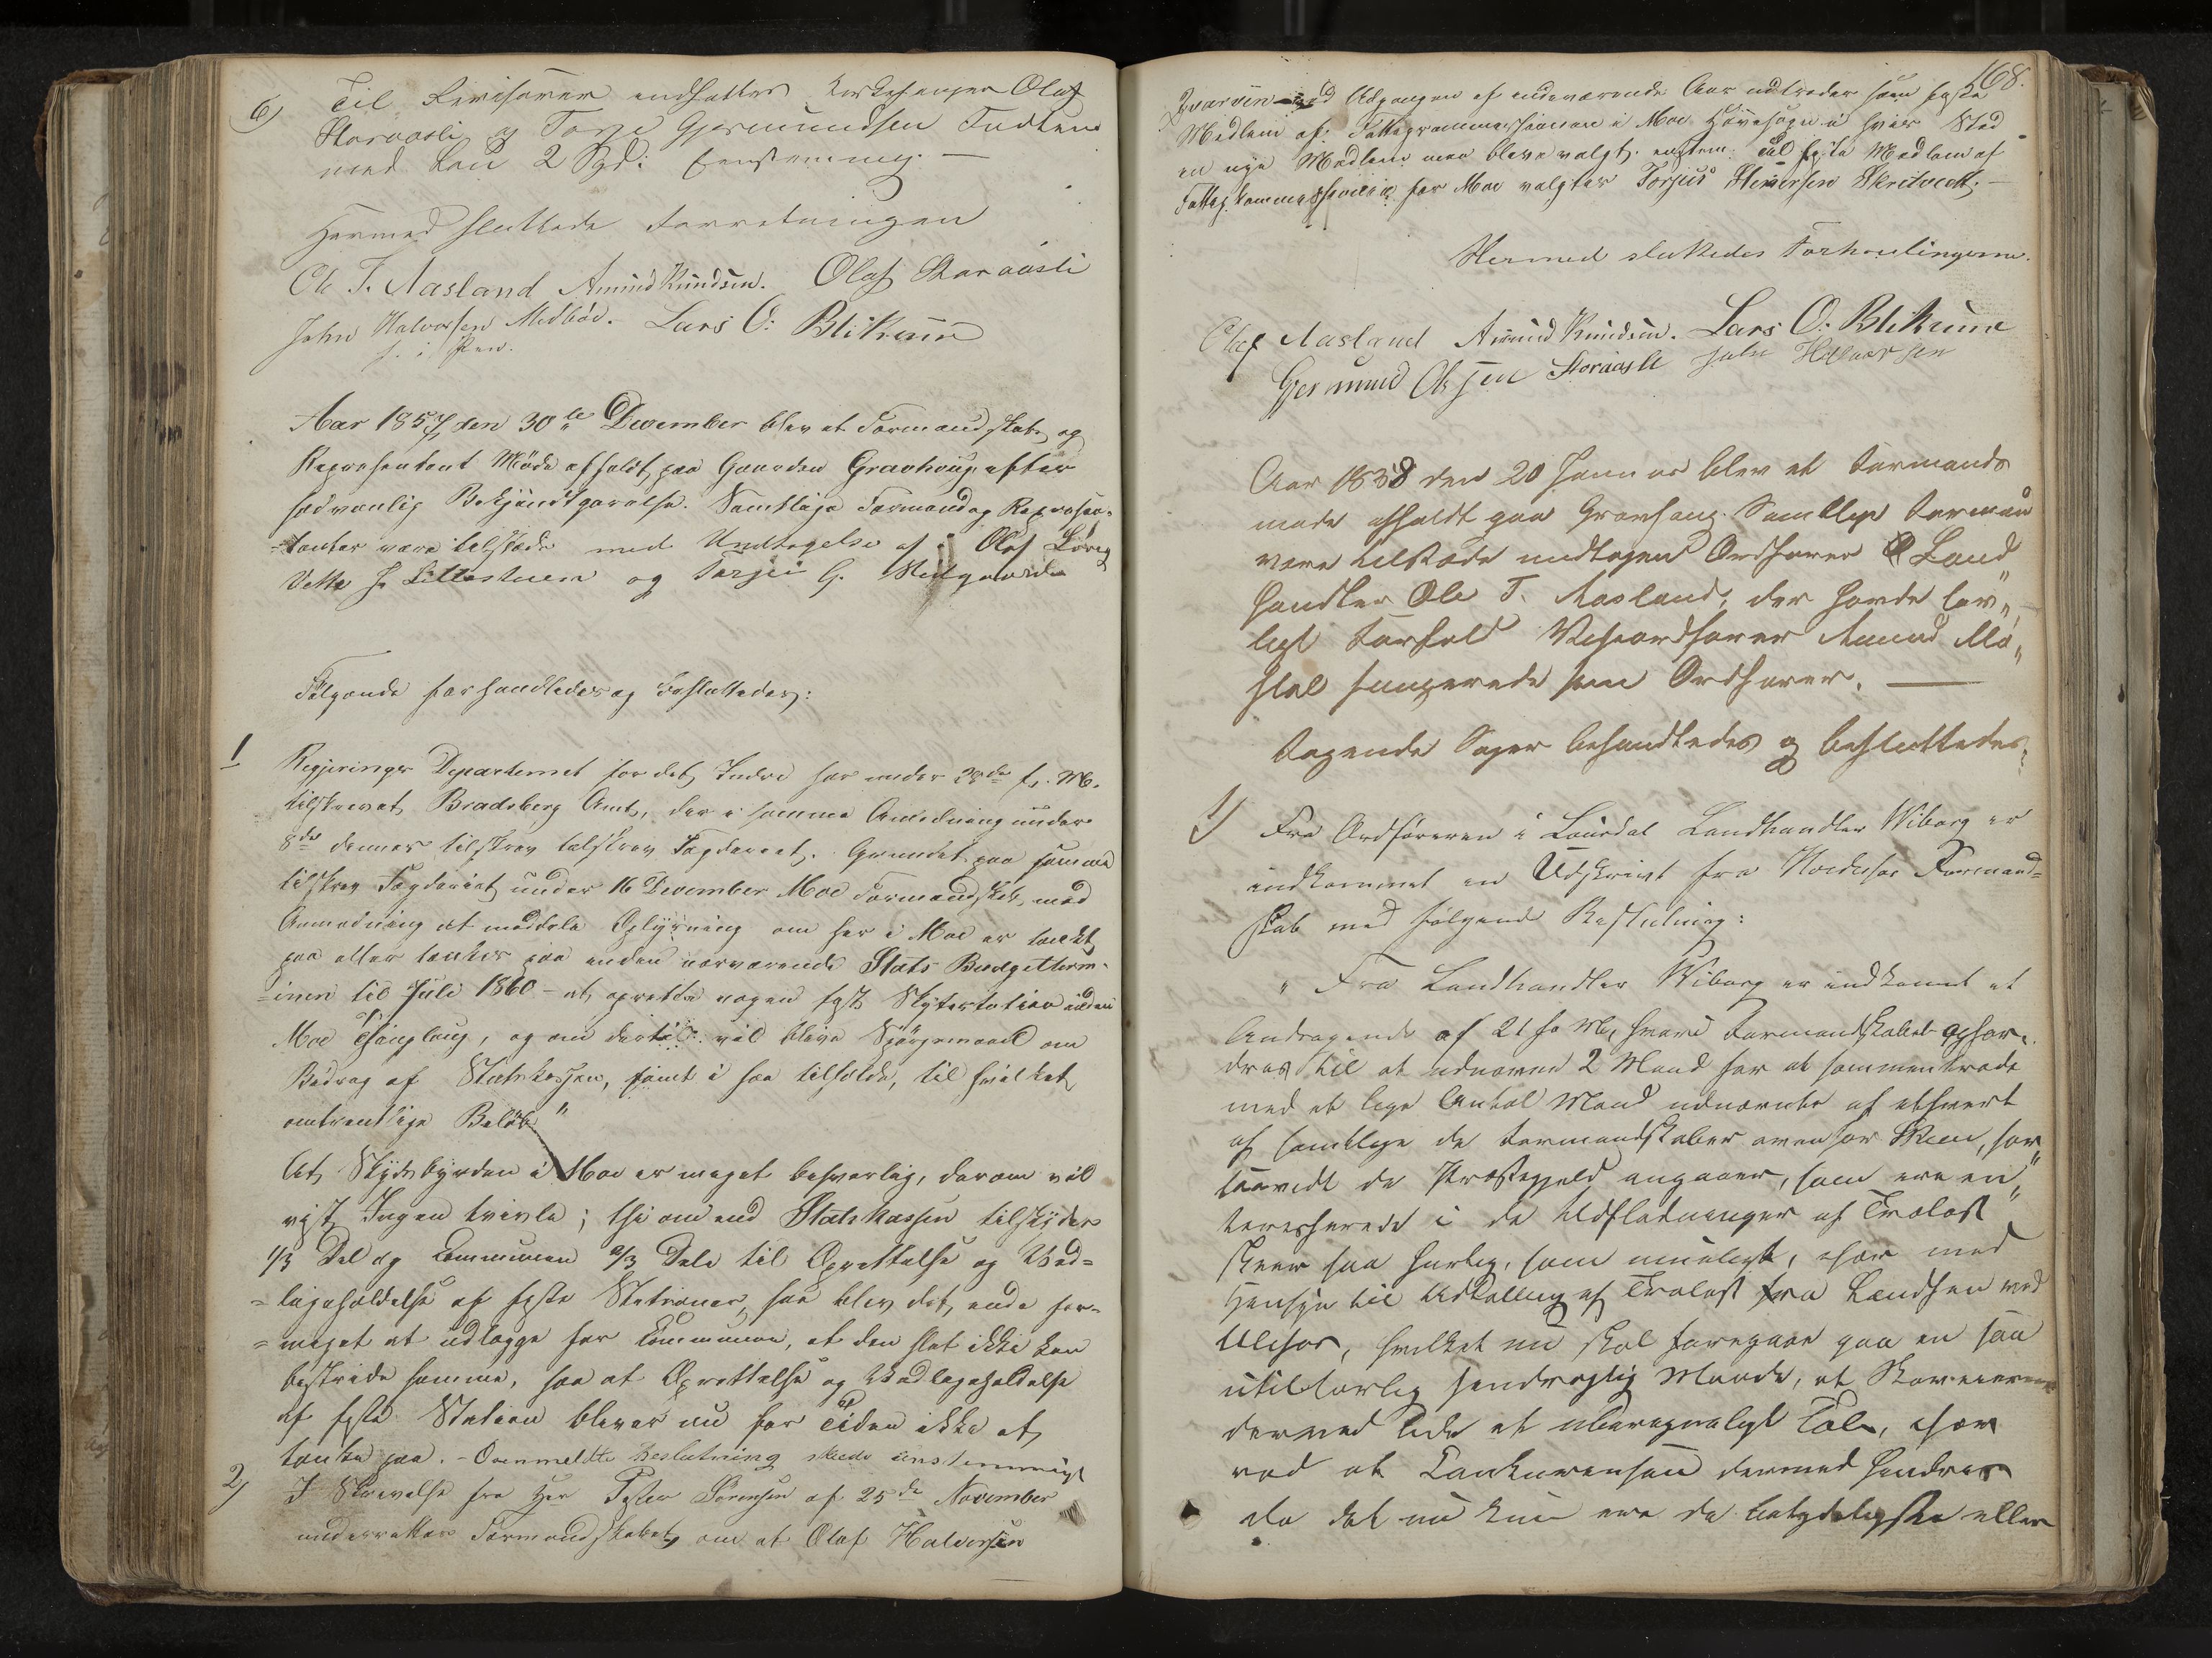 6) Til Revisorer ansattes Kirkesanger Olaf
Storaasli og Torje Gjermundsen
med Løn 2 Spd: Eenstemmig. —
Hermed sluttede Forretningen
Ole T. Aasland Amund Knudsen. Olaf Storaasli
John Halvorsen Midbøe. Lars O: Blikom
f. i Pen.
Aar 1857 den 30te December blev et Formandskabs og
Repræsentant Møde afholdt paa Gaarden Gravhoug efter
sædvanlig Bekjendtgjørelse. Samtlige Formænd og Repræsen-
-tanter vare tilstæde med Undtagelse af Olaf
Vetle J. Lillestuen og Torjei G.
Følgende forhandledes og besluttedes:
1 Regjerings Departemet for det Indre har under 28de f. M.
tilskrevet Bradsberg Amt, der i samme Anledning under
8de dennes tilskrev tilskrev Fogderiet. Grundet paa samme
tilskrev Fogderiet under 16 December Moe Formandskab, med
Anmodning at meddele Oplysning om her i Moe er tænkt
paa eller tænkes paa inden nærværende Stats Budgetterm-
-inen til Juli 1860 - at oprette nogen fast Skydsstation inden
Moe Thinglaug, og om dertil vil blive Spørgsmaal om
Bidrag af Statskassen, samt i saa tilfælde, til hvilket
omtrentlige Beløb"
At Skydsbyrden i Moe er meget besværlig, derom vil
vist Ingen tvivle; thi om end Statskassen tilskyder
1/3 Del og Communen 2/3 Dele til Oprettelse og Ved-
-ligeholdelse af faste Stationer, saa blev det, enda for-
-meget at udlægge for Communen, at den slet ikke kan
bestride samme, saa at Oprettelse og Vedligeholdelse
af faste Station bliver nu for Tiden ikke at
tænke paa. - Ovenmeldte Beslutning skede eenstemmigt
2) I Skrivelse fra Her Pastor Sørensen af 25de November
underretter Formandskabet om at Olaf Halvorsen
168.
ved Udgangen af indeværende Aar udtræder som faste
Medlem af Fattigcommissionen i Moe Hovedsogn i hvis Sted
en nye Medlem maa blive valgt. Til faste Medlem af
Fattigcommissionen for Moe valgtes Torjus Steinersen Skretvedt. —
Hermed sluttedes Forhandlingerne.
Olaf Aasland Amund Knudsen. Lars O: Blikom
Gjermund Olsen Storaasli John Halvorsen
Aar 1858 den 20 Januar blev et Formands
møde afholdt paa Gravhaug. Samtlige Formænd
vare tilstæde undtagen Ordfører Land"
handler Ole T. Aasland, der havde lov"
ligt Forfald Viseordfører Amund Mo"
støl fungerede som Ordfører. —
følgende Sager behandledes og besluttedes:
1) Fra Ordføreren i Laurdal Landhandler Wiborg er
indkommet en Udskrivt fra Hvideseø Formand=
skab med følgende Beslutning:
" Fra Landhandler Wiborg er indkomt et
Andragende af 21 f. M, hvori Formandskabet opfor"
dres til at udnævne 2 Mænd for at sammentræde
med et lige Antal Mænd udnævnte af ethvert
af samtlige de Formandskaber ovenfor Skien, for"
saavidt de Præstegjeld angaaer, som ere in"
teresserede i de Udflødninger af Trælast
skeer saa hurtig, som mueligt, især med
Hensyn til Udtælling af Trælast fra Lændsen ved
Ulefos, hvilket nu skal foregaae paa en saa
utilbørlig sendrægtig Maade, at Skoveierne
derved lide et uberegneligt Tab, især
ved at Conkurensen dermed hindres
da det nu kun ere de betydeligste eller